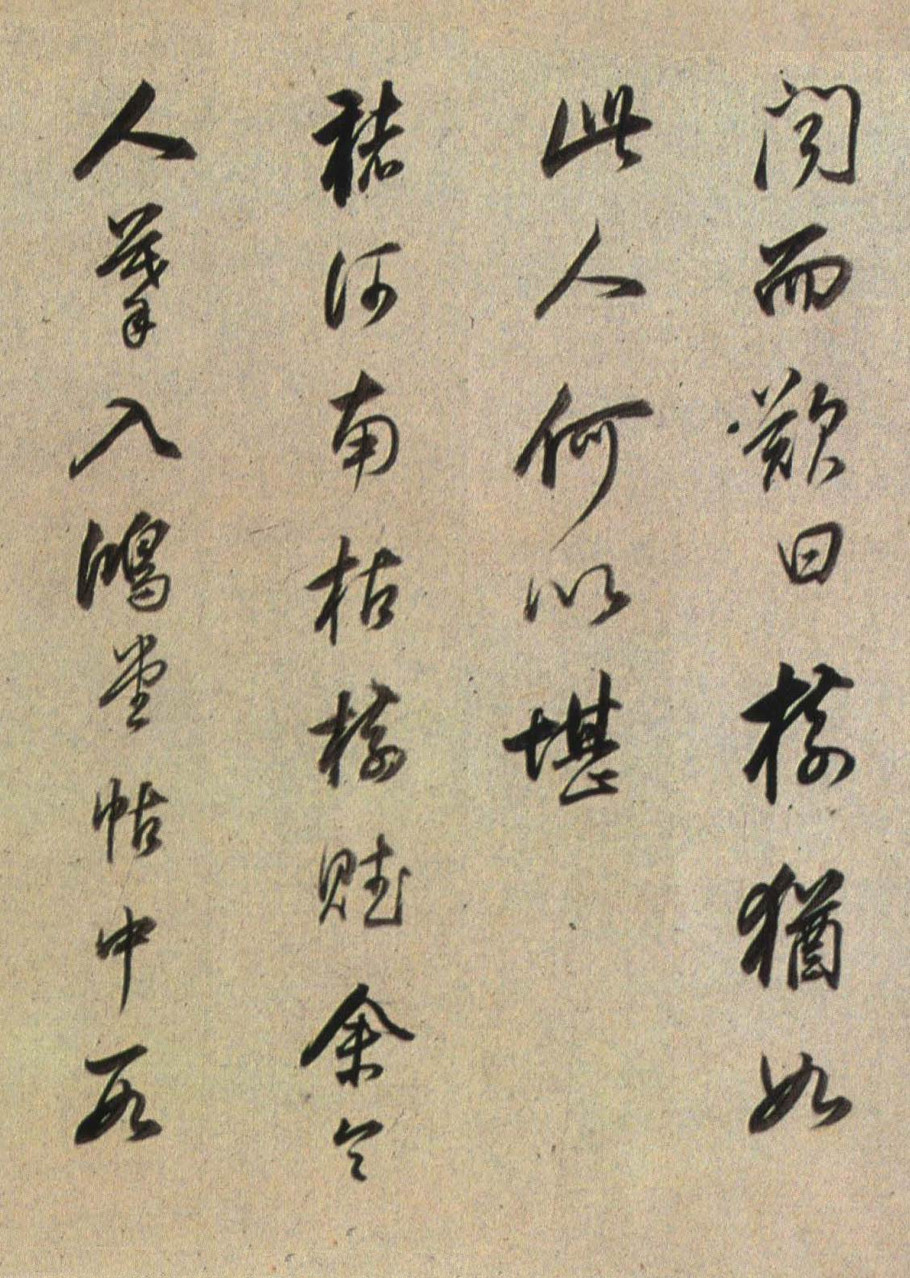 聞而歎曰樹猶如
此人何以堪
褚河南枯樹賦余令
人摹入鴻堂帖中